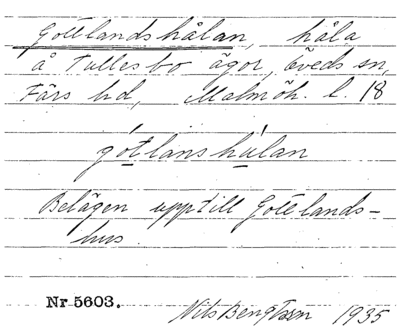 Gottlandshålan, håla
å Tullesbo ägor, Öveds sn,
Färs hd, Malmöh. l. 18
gótlanshúlan
Belägen upptill Gottlands-
hus.
Nr 5603.
Nils Bengtsson 1935